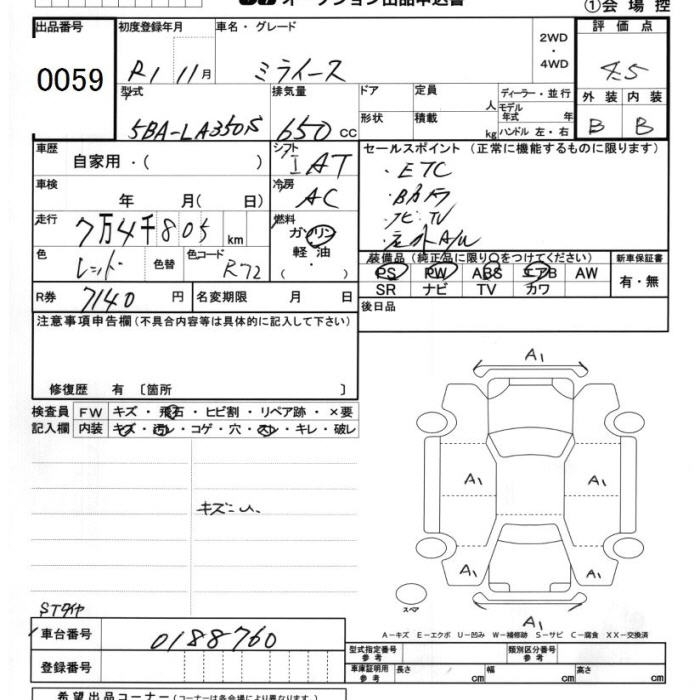 オークション出品申込書
①会場控
出品番号 初度登録年月 車名・グレード 2WD・4WD 評価点
0059 R1 11月 ミライース 4.5
型式 排気量 ドア 定員 人 ディーラー・並行 外装 内装
5BA-LA350S 650 cc 形状 積載 kg モデル年式 年 ハンドル 左・右 B B
車歴 自家用・( ) シフト IAT セールスポイント (正常に機能するものに限ります)
・ETC
車検 年 月( 日) 冷房 AC
・ナビ TV
走行 7万4千805 km 燃料 ガソリン 軽油 ( ・ )
色 レッド 色替 色コード R72 装備品 (純正品に限り○をつけてください) 新車保証書
PS PW ABS エアB AW 有・無
SR ナビ TV カワ
R券 7140 円 名変期限 月 日 後日品
注意事項申告欄 (不具合内容等は具体的に記入して下さい)
修復歴 有 〔箇所 〕
検査員 FW キズ・飛石・ヒビ割・リペア跡・×要
記入欄 内装 キズ・汚レ・コゲ・穴・スレ・キレ・破レ
A1
A1 A1
キズ
A1 A1
スペア
A1
STタイヤ
A-キズ E-エクボ U-凹み W-補修跡 S-サビ C-腐食 XX-交換済
車台番号 0188760
型式指定番号 参考 類別区分番号 参考
登録番号
車庫証明用 参考 長さ cm 幅 cm 高さ cm
希望出品コーナー (コーナーは各会場により異なります)